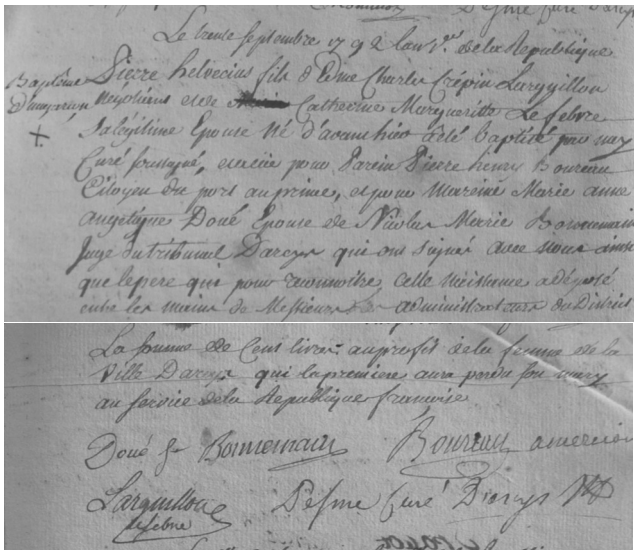 Le trente septembre 1792 l'an 1er de la Republique
Baptême
Pierre helvecius fils d'Edme Charles Crépin Larguillon
négotiant et de Catherine Margueritte Lefebvre
Sa légitime Epouse né d'avant hier a été baptisé par moy
Curé soussigné, et a eu pour Parein Pierre henry Boureau
Citoyen du port au prince, et pour Mareine Marie anne
angelique Doué Epouse de Nicolas Marie Bonnemain
Juge du tribunal D'arcys qui ont signé avec nous ainsi
que le pere qui pour reconnoitre cette a déposé
entre les mains de Messieurs administrateurs du District
La somme de Cent livres au profit de la femme de la
Ville D'arcys qui la premiere aura perdu son mary
au Service de la Republique francoise
Doué fe Bonnemain Boureau americain
Larguillon curé D'arcys
Lefebvre